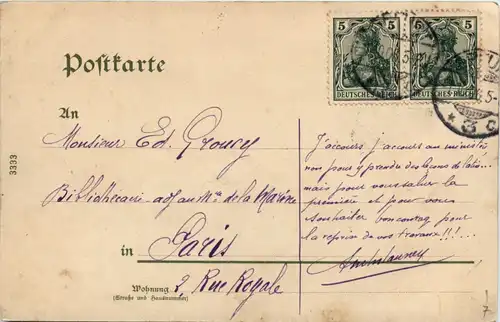 5 5 5 5
DEUTSCHES REICH DEUTSCHES REICH
Postkarte
An
Monsieur Ed.
Bibliothécaire adj au Mre de la Marine
in Paris
Wohnung 2, Rue Royale
(Straße und Hausnummer)
3333
J'accours j'accours au ministère
non pour y prendre des leçons de
mais pour vous saluer la
première et pour vous
souhaiter bon courage pour
la reprise de vos travaux!!!...
7